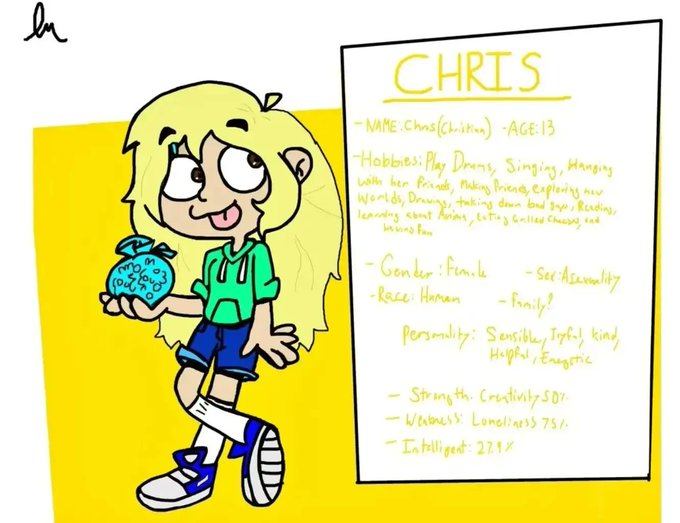 CHRIS
-NAME: Chris(Christian) -AGE:13
-Hobbies: Play Drums, Singing, Hanging
with her Friends, Making Friends, exploring new
Worlds, Drawing, taking down bad guys, Reading,
learning about Anime, Eating Grilled Cheeses, and
Having Fun
-Gender: Female -Sex: Asexuality
-Race: Human -Family?
Personality: Sensible, Joyful, Kind,
Helpful, Energetic
- Strength: Creativity 50%
- Weakness: Loneliness 75%
- Intelligent: 27.9%